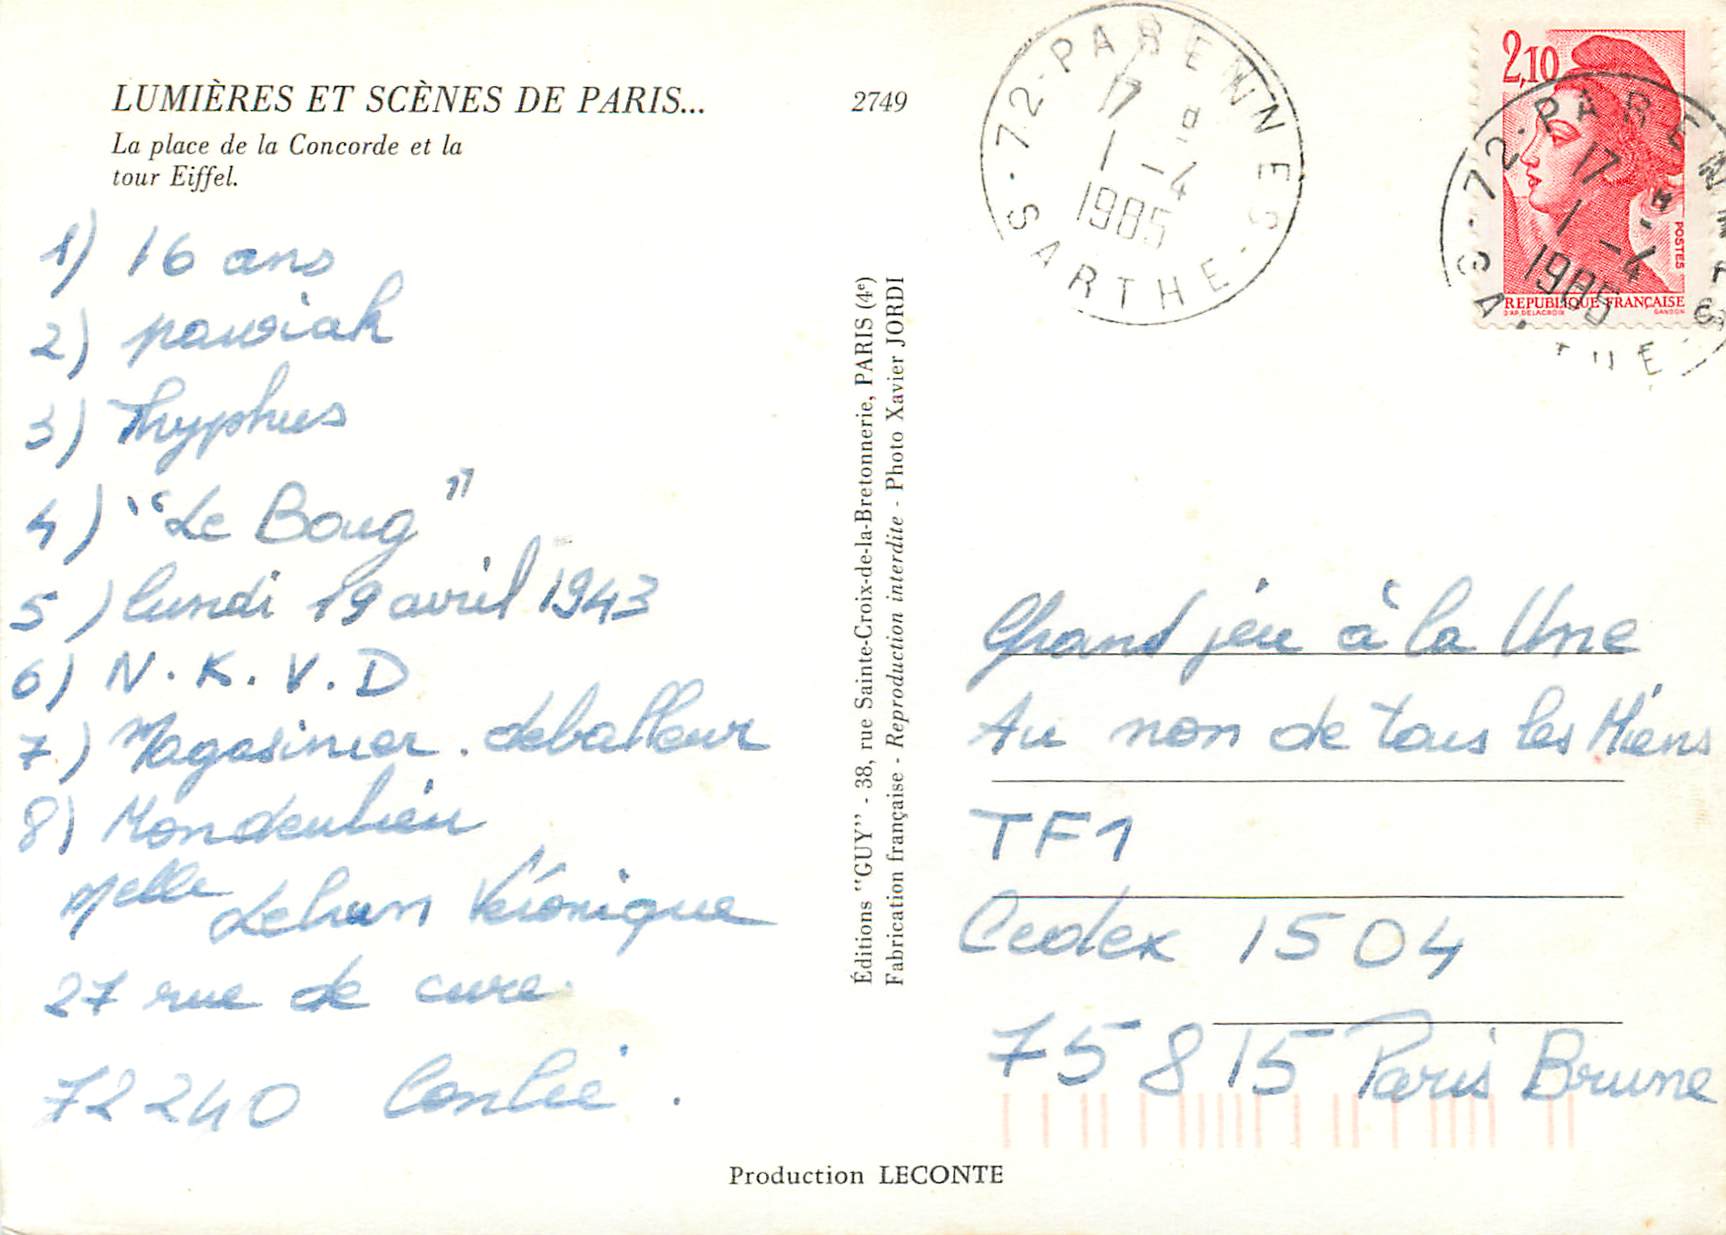 LUMIÈRES ET SCÈNES DE PARIS...
2749
La place de la Concorde et la
tour Eiffel.
1) 16 ans
2) pawiak
3) Thyphus
4) "Le Boug"
5) lundi 19 avril 1943
6) N.K.V.D
7) Magasinier. deballeur
8) Mondeulieu
Melle Lehun Véronique
27 rue de cure.
72240 Conlie.
Éditions "GUY" - 38, rue Sainte-Croix-de-la-Bretonnerie, PARIS (4e)
Fabrication française - Reproduction interdite - Photo Xavier JORDI
72 - PARENNES - SARTHE
17 H
1 - 4
1985
2,10
POSTES
REPUBLIQUE FRANÇAISE
D'AP. DELACROIX GANDON
72 - PARENNES - SARTHE
17 H
1 - 4
1985
Grand jeu à la Une
Au non de tous les Miens
TF1
Cedex 1504
75815 Paris Brune
Production LECONTE